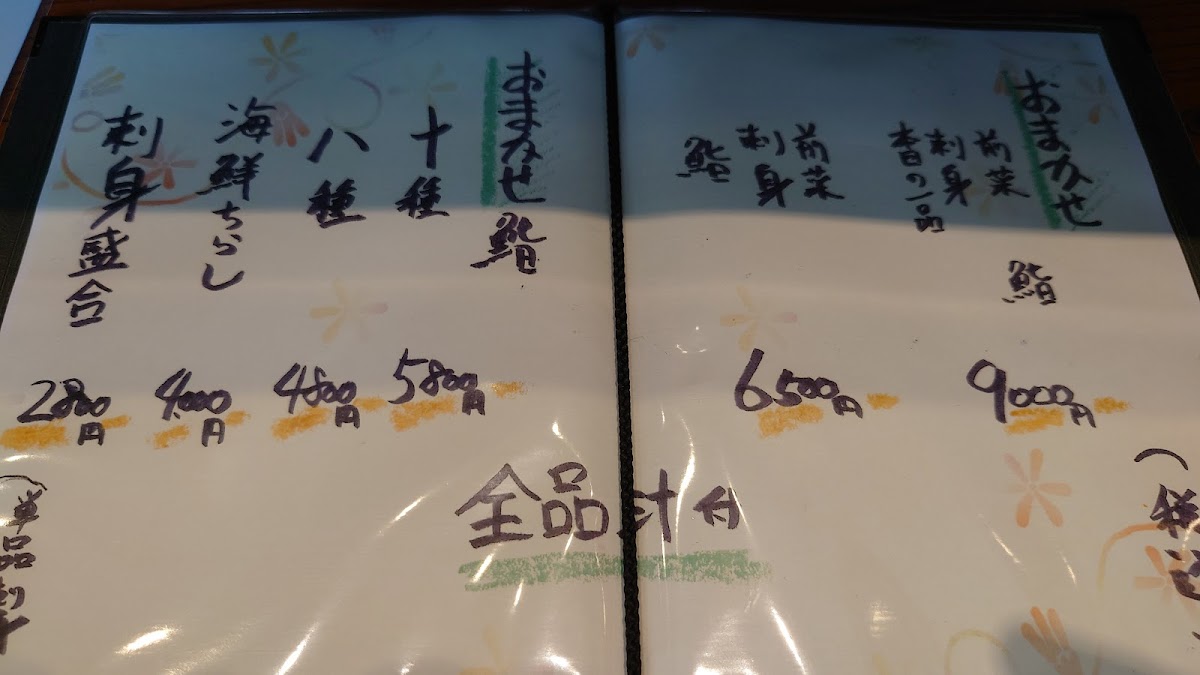 おまかせ
前菜
刺身
本日の一品
鮨
9000円
前菜
刺身
鮨
6500円
(税込
おまかせ鮨
十種
5800円
八種
4800円
海鮮ちらし
4,000円
刺身盛合
2800円
(単品
全品汁付